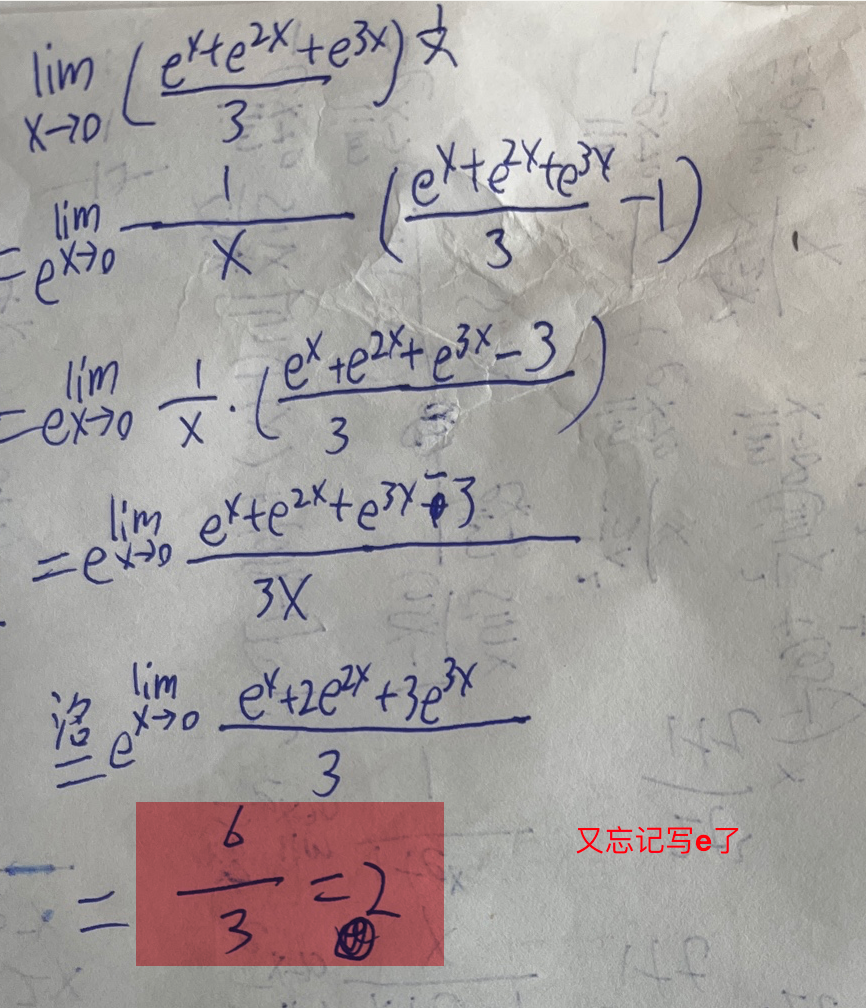 lim x→0 ( (eˣ+e²ˣ+e³ˣ)/3 )^(1/x)
= e^lim x→0 1/x ( (eˣ+e²ˣ+e³ˣ)/3 -1 )
= e^lim x→0 1/x · ( (eˣ+e²ˣ+e³ˣ-3)/3 )
= e^lim x→0 (eˣ+e²ˣ+e³ˣ-3)/3x
洛
= e^lim x→0 (eˣ+2e²ˣ+3e³ˣ)/3
= 6/3 = 2
又忘记写e了